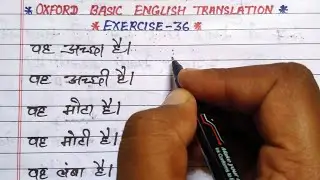 *OXFORD BASIC ENGLISH TRANSLATION*
*EXERCISE-36*
वह अच्छा है।
वह अच्छी है।
वह मोटा है।
वह मोटी है।
वह लंबा है।